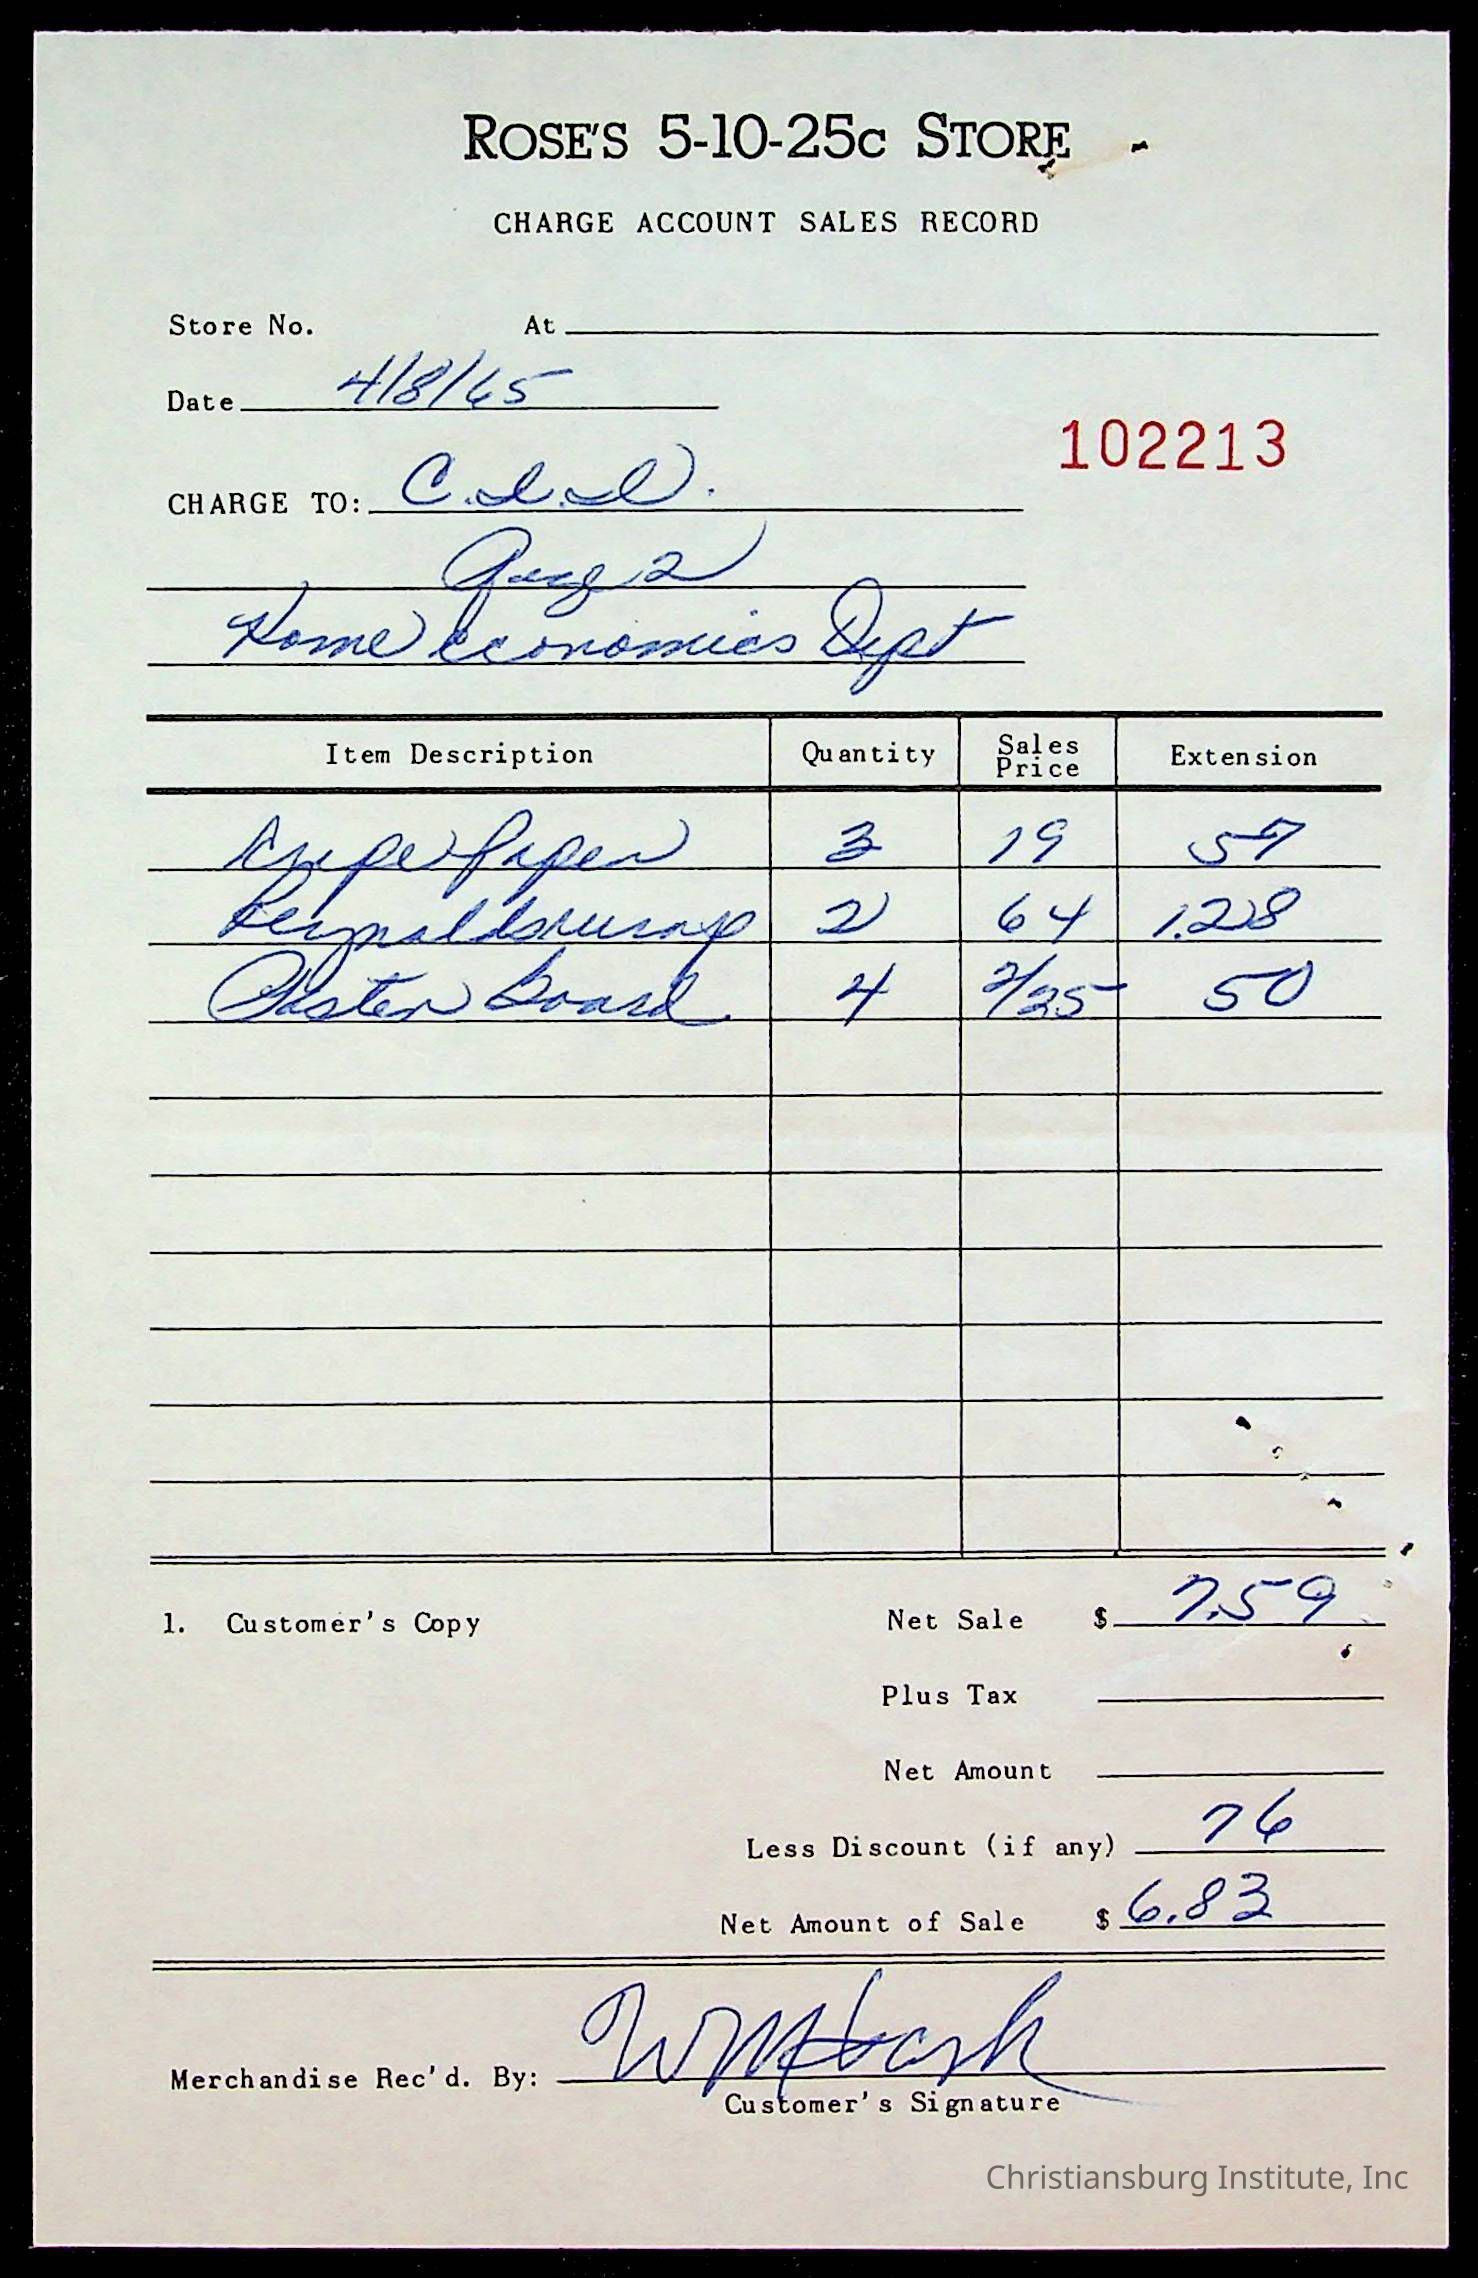 ROSE'S 5-10-25c STORE
CHARGE ACCOUNT SALES RECORD
Store No. At
Date 4/8/65
102213
CHARGE TO:
Home Economics Dept
Item Description Quantity Sales Price Extension
Crepe Paper 3 19 57
Reynoldswrap 2 64 1.28
Poster Board 4 2/25 50
1. Customer's Copy Net Sale $ 7.59
Plus Tax
Net Amount
Less Discount (if any) 76
Net Amount of Sale $ 6.83
Merchandise Rec'd. By:
Customer's Signature
Christiansburg Institute, Inc